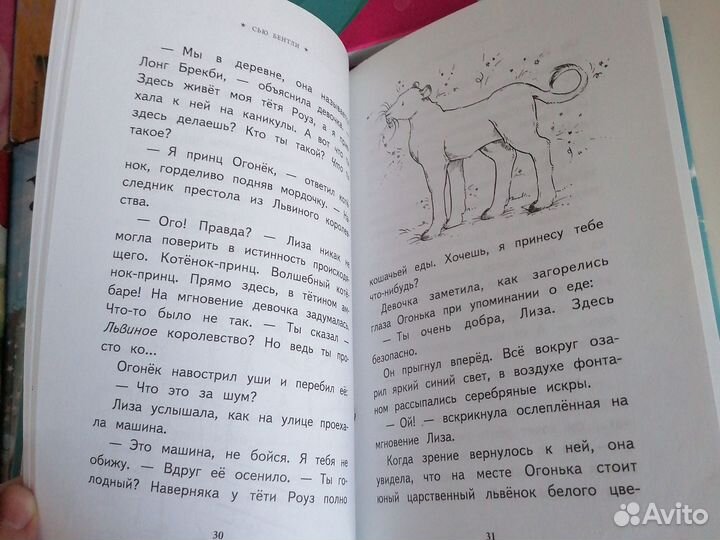 ★ СЬЮ БЕНТЛИ ★
— Мы в деревне, она называет
Лонг Брекби, — объяснила девочка. —
Здесь живёт моя тётя Роуз, а я при
хала к ней на каникулы. А вот что
здесь делаешь? Кто ты такой? Что
такое?
— Я принц Огонёк, — ответил кот
нок, горделиво подняв мордочку. — На
следник престола из Львиного королев
ства.
— Ого! Правда? — Лиза никак не
могла поверить в истинность происходя
щего. Котёнок-принц. Волшебный котё
нок-принц. Прямо здесь, в тётином ам
баре! На мгновение девочка задумалась.
Что-то было не так. — Ты сказал —
Львиное королевство? Но ведь ты про-
сто ко...
Огонёк навострил уши и перебил её:
— Что это за шум?
Лиза услышала, как на улице проеха-
ла машина.
— Это машина, не бойся. Я тебя не
обижу. — Вдруг её осенило. — Ты го-
лодный? Наверняка у тёти Роуз полно
30
кошачьей еды. Хочешь, я принесу тебе
что-нибудь?
Девочка заметила, как загорелись
глаза Огонька при упоминании о еде:
— Ты очень добра, Лиза. Здесь
безопасно.
Он прыгнул вперёд. Всё вокруг оза-
рил яркий синий свет, в воздухе фонта-
ном рассыпались серебряные искры.
— Ой! — вскрикнула ослеплённая на
мгновение Лиза.
Когда зрение вернулось к ней, она
увидела, что на месте Огонька стоит
юный царственный львёнок белого цве-
31
Avito